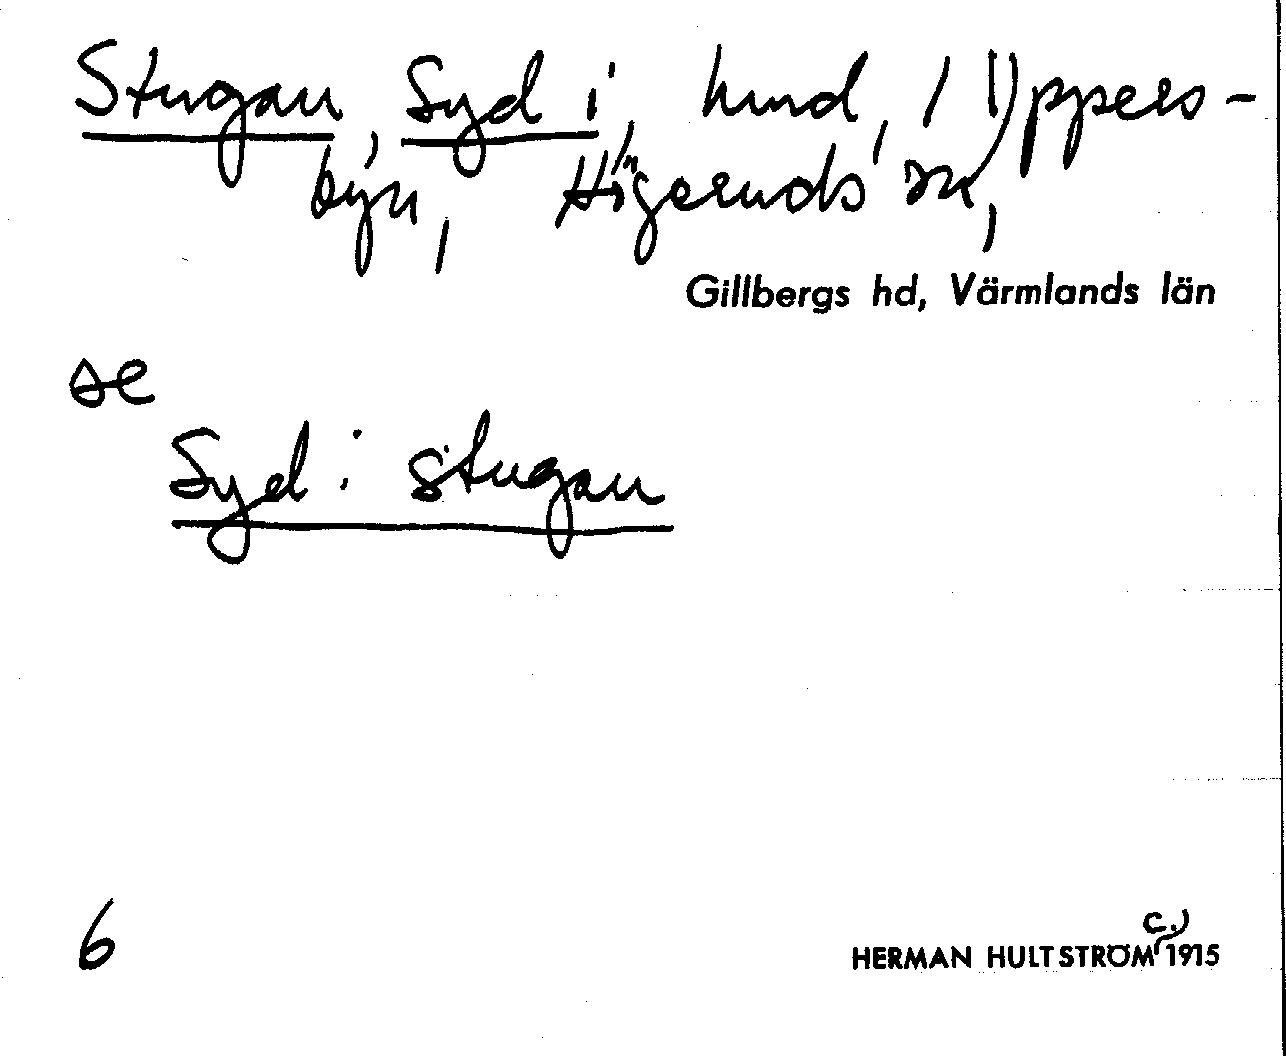 Stugan, Syd i, hmd, / Uppers-
byn, Högeruds sn,
Gillbergs hd, Värmlands län
se
Syd i stugan
6
c.)
HERMAN HULTSTRÖM 1915